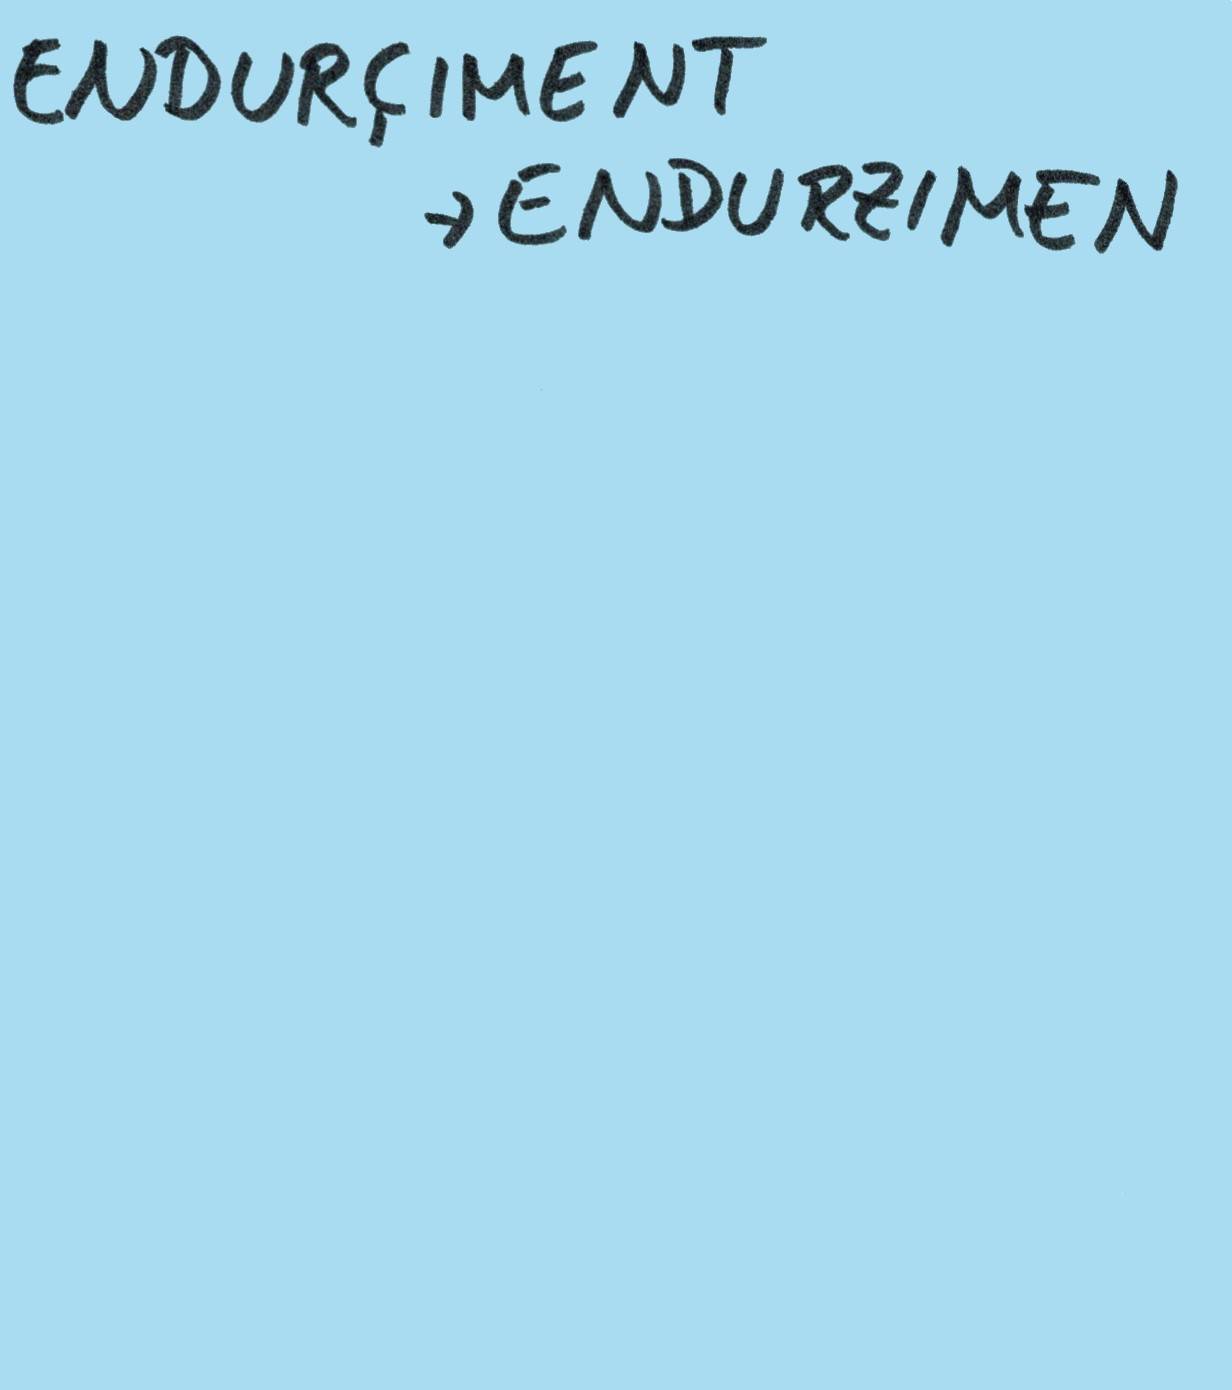 ENDURÇIMENT
→ ENDURZIMEN